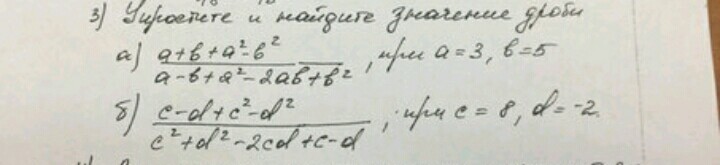 3) Упростите и найдите значение дроби
а) a+b+a²-b² / a-b+a²-2ab+b² , при a=3, b=5
б) c-d+c²-d² / c²+d²-2cd+c-d , при c=8, d=-2.